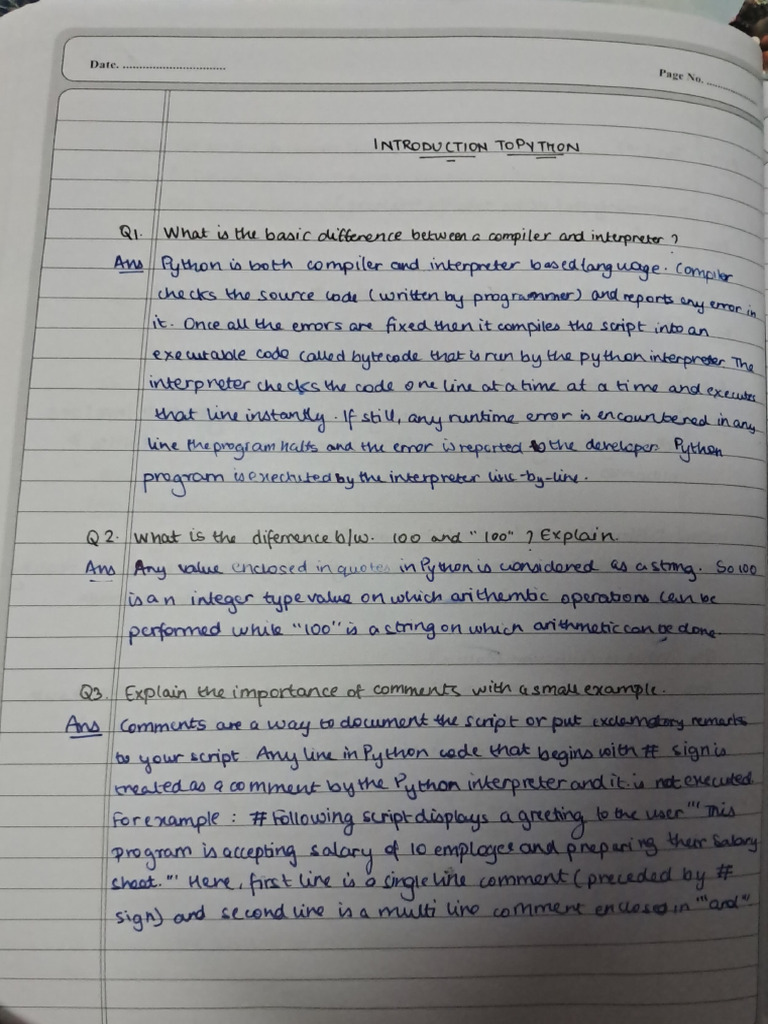 Date. ..............................
Page No. ............
INTRODUCTION TO PYTHON
Q1. What is the basic difference between a compiler and interpreter ?
Ans Python is both compiler and interpreter based language. Compiler
checks the source code (written by programmer) and reports any error in
it. Once all the errors are fixed then it compiles the script into an
executable code called bytecode that is run by the python interpreter. The
interpreter checks the code one line at a time at a time and executes
that line instantly. If still, any runtime error is encountered in any
line the program halts and the error is reported to the developer Python
program is exectuted by the interpreter line-by-line.
Q2. What is the diference b/w. 100 and "100" ? Explain.
Ans Any value enclosed in quotes in Python is considered as a string. So 100
is an integer type value on which arithemtic operations can be
performed while "100" is a string on which arithmetic can be done.
Q3. Explain the importance of comments with a small example.
Ans Comments are a way to document the script or put remarks
to your script Any line in Python code that begins with # sign is
treated as a comment by the Python interpreter and it is not executed.
For example : # Following script displays a greeting to the user "'This
program is accepting salary of 10 employees and preparing their salary
sheet."' Here, first line is a single line comment (preceded by #
sign) and second line is a multi line comment enclosed in "'and"'